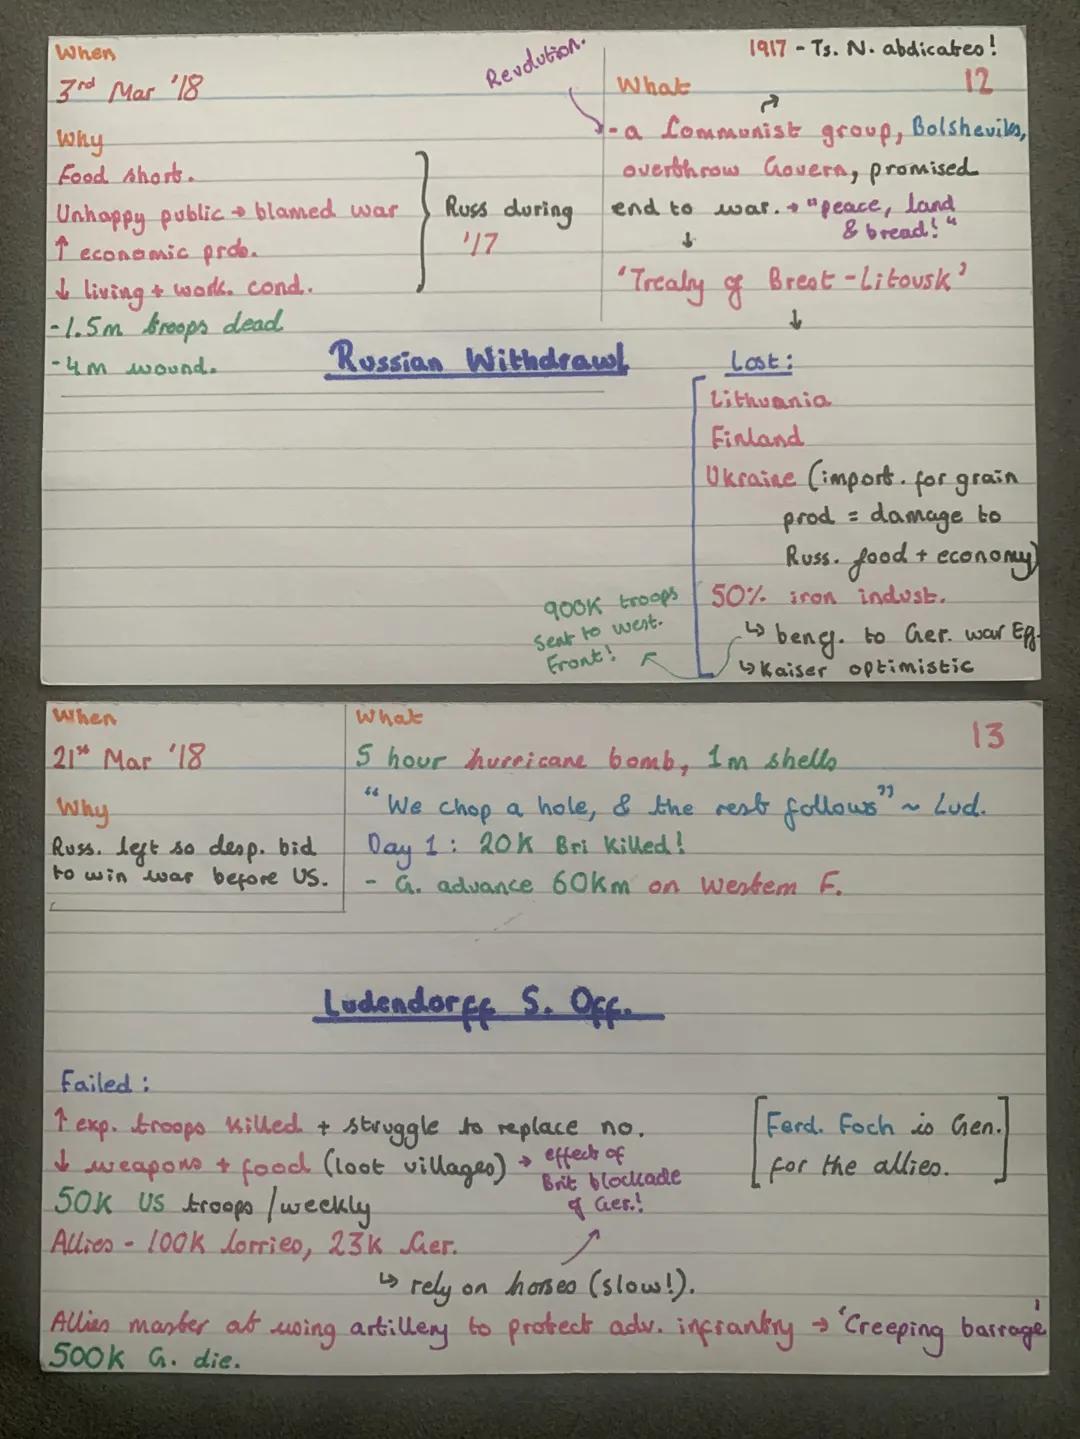 When
3rd Mar '18
Why
Food short.
Unhappy public → blamed war
↑ economic prob.
↓ living + work. cond.
Russ during
'17
-1.5m troops dead
-4m wound.
Revolution.
1917 - Ts. N. abdicates!
12
What
-a Communist group, Bolsheviks,
overthrow Govern, promised
end to war. → "peace, land
& bread!"
↓
'Treaty of Brest-Litovsk'
↓
Russian Withdrawl
Lost:
Lithuania
Finland
Ukraine (import. for grain
prod = damage to
Russ. food + economy)
50% iron indust.
↳ benef. to Ger. war Eff.
↳ Kaiser optimistic
900K troops
sent to West.
Front!
When
21st Mar '18
Why
Russ. left so desp. bid
to win war before US.
What
13
5 hour hurricane bomb, 1m shells
"We chop a hole, & the rest follows" ~ Lud.
Day 1: 20K Bri killed!
- G. advance 60Km on Western F.
Ludendorff S. Off.
Failed:
↑ exp. troops killed + struggle to replace no.
↓ weapons + food (loot villages) → effect of
Brit blockade
of Ger.!
50K US troops/weekly
Allies - 100K lorries, 23K Ger.
↳ rely on horses (slow!).
[Ferd. Foch is Gen.
for the allies.]
Allies master at using artillery to protect adv. infrantry → 'Creeping barrage'
500K G. die.